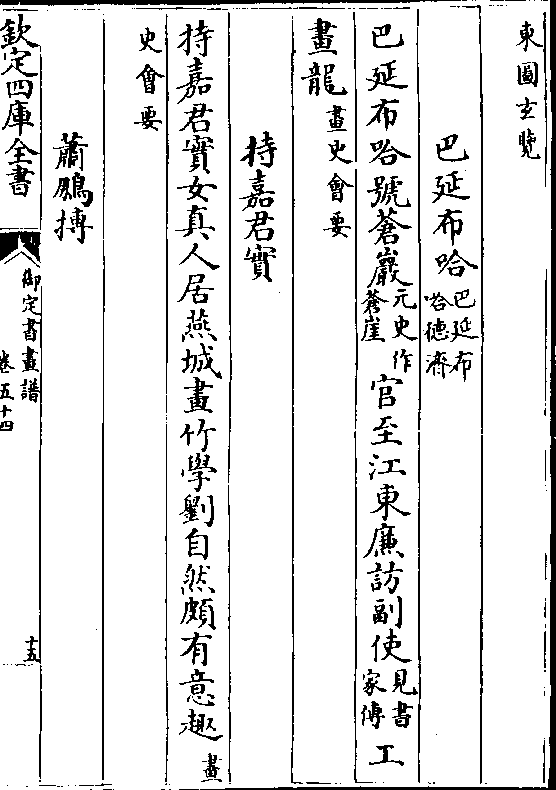 東圖玄覽
巴延布哈巴延布哈德濟
巴延布哈號蒼巖元史作蒼崖官至江東廉訪副使見書家傳工
畫龍畫史會要
持嘉君實
持嘉君實女真人居燕城畫竹學劉自然頗有意趣畫
史會要
蕭鵬摶
欽定四庫全書
御定書畫譜
卷五十四
十五